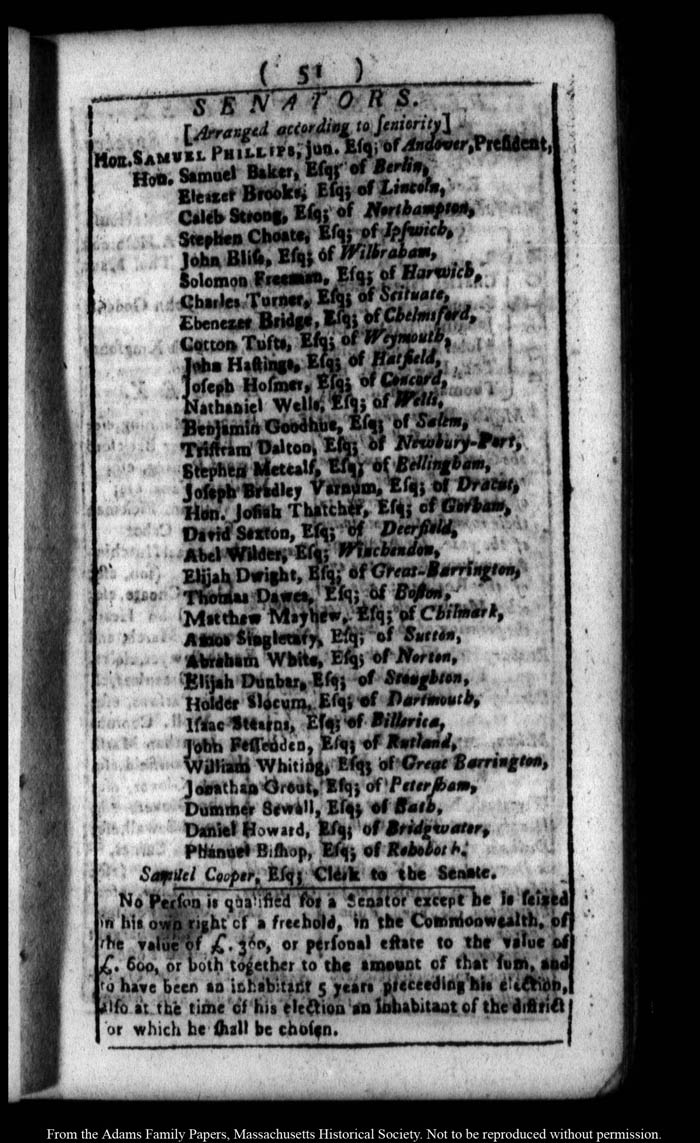 ( 51 )
SENATORS.
[Arranged according to ſeniority]
Hon. SAMUEL PHILLIPS, jun. Eſq; of Andover, Preſident,
Hon. Samuel Baker, Eſq; of Berlin,
Eleazer Brooks, Eſq; of Lincoln,
Caleb Strong, Eſq; of Northampton,
Stephen Choate, Eſq; of Ipſwich,
John Bliſs, Eſq; of Wilbraham,
Solomon Freeman, Eſq; of Harwich,
Charles Turner, Eſq; of Scituate,
Ebenezer Bridge, Eſq; of Chelmsford,
Cotton Tufts, Eſq; of Weymouth,
John Haſtings, Eſq; of Hatfield,
Joſeph Hoſmer, Eſq; of Concord,
Nathaniel Wells, Eſq; of Wells,
Benjamin Goodhue, Eſq; of Salem,
Triſtram Dalton, Eſq; of Newbury-Port,
Stephen Metcalf, Eſq; of Bellingham,
Joſeph Bradley Varnum, Eſq; of Dracut,
Hon. Joſiah Thatcher, Eſq; of Gorham,
David Sexton, Eſq; of Deerfield,
Abel Wilder, Eſq; Winchendon,
Elijah Dwight, Eſq; of Great-Barrington,
Thomas Dawes, Eſq; of Boſton,
Matthew Mayhew, Eſq; of Chilmark,
Amos Singletary, Eſq; of Sutton,
Abraham White, Eſq; of Norton,
Elijah Dunbar, Eſq; of Stoughton,
Holder Slocum, Eſq; of Dartmouth,
Iſaac Stearns, Eſq; of Billerica,
John Feſſenden, Eſq; of Rutland,
William Whiting, Eſq; of Great Barrington,
Jonathan Grout, Eſq; of Peterſham,
Dummer Sewall, Eſq; of Bath,
Daniel Howard, Eſq; of Bridgwater,
Phanuel Biſhop, Eſq; of Rehoboth.
Samuel Cooper, Eſq; Clerk to the Senate.
No Perſon is qualified for a Senator except he is ſeized
in his own right of a freehold, in the Commonwealth, of
the value of £. 300, or perſonal eſtate to the value of
£. 600, or both together to the amount of that ſum, and
to have been an inhabitant 5 years preceeding his election,
alſo at the time of his election an inhabitant of the diſtrict
or which he ſhall be choſen.
From the Adams Family Papers, Massachusetts Historical Society. Not to be reproduced without permission.